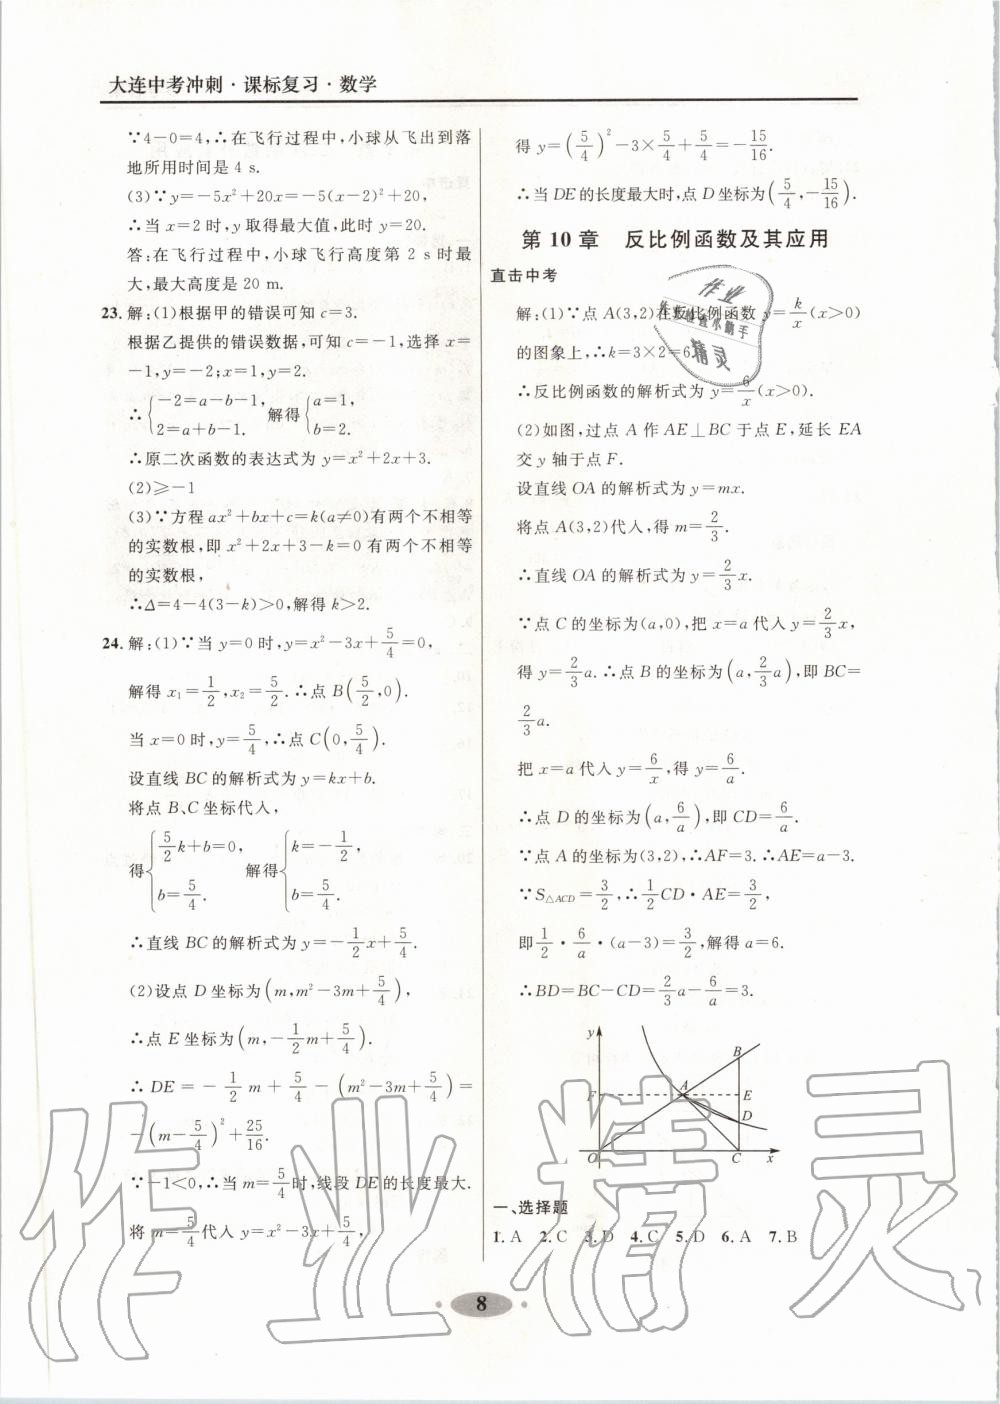 大连中考冲刺·课标复习·数学
∵4-0=4,∴在飞行过程中,小球从飞出到落
地所用时间是 4 s.
(3)∵y=-5x²+20x=-5(x-2)²+20,
∴当 x=2 时,y 取得最大值,此时 y=20.
答:在飞行过程中,小球飞行高度第 2 s 时最
大,最大高度是 20 m.
23. 解:(1)根据甲的错误可知 c=3.
根据乙提供的错误数据,可知 c=-1,选择 x=
-1,y=-2;x=1,y=2.
∴{-2=a-b-1, 2=a+b-1. 解得{a=1, b=2.
∴原二次函数的表达式为 y=x²+2x+3.
(2)≥-1
(3)∵方程 ax²+bx+c=k(a≠0)有两个不相等
的实数根,即 x²+2x+3-k=0 有两个不相等
的实数根,
∴Δ=4-4(3-k)>0,解得 k>2.
24. 解:(1)∵当 y=0 时,y=x²-3x+5/4=0,
解得 x₁=1/2,x₂=5/2.∴点 B(5/2,0).
当 x=0 时,y=5/4,∴点 C(0,5/4).
设直线 BC 的解析式为 y=kx+b.
将点 B、C 坐标代入,
得{5/2k+b=0, b=5/4. 解得{k=-1/2, b=5/4.
∴直线 BC 的解析式为 y=-1/2x+5/4.
(2)设点 D 坐标为(m,m²-3m+5/4),
∴点 E 坐标为(m,-1/2m+5/4).
∴DE=-1/2m+5/4-(m²-3m+5/4)=
-(m-5/4)²+25/16.
∵-1<0,∴当 m=5/4时,线段 DE 的长度最大.
将 m=5/4代入 y=x²-3x+5/4,
得 y=(5/4)²-3×5/4+5/4=-15/16.
∴当 DE 的长度最大时,点 D 坐标为(5/4,-15/16).
第 10 章 反比例函数及其应用
直击中考
解:(1)∵点 A(3,2)在反比例函数 y=k/x(x>0)
的图象上,∴k=3×2=6.
∴反比例函数的解析式为 y=6/x(x>0).
(2)如图,过点 A 作 AE⊥BC 于点 E,延长 EA
交 y 轴于点 F.
设直线 OA 的解析式为 y=mx.
将点 A(3,2)代入,得 m=2/3.
∴直线 OA 的解析式为 y=2/3x.
∵点 C 的坐标为(a,0),把 x=a 代入 y=2/3x,
得 y=2/3a.∴点 B 的坐标为(a,2/3a),即 BC=
2/3a.
把 x=a 代入 y=6/x,得 y=6/a.
∴点 D 的坐标为(a,6/a),即 CD=6/a.
∵点 A 的坐标为(3,2),∴AF=3.∴AE=a-3.
∵S△ACD=3/2,∴1/2CD·AE=3/2,
即1/2·6/a·(a-3)=3/2,解得 a=6.
∴BD=BC-CD=2/3a-6/a=3.
y
B
A
F
E
D
O
C
x
一、选择题
1. A 2. C 3. D 4. C 5. D 6. A 7. B
8
作业精灵
作业
精灵